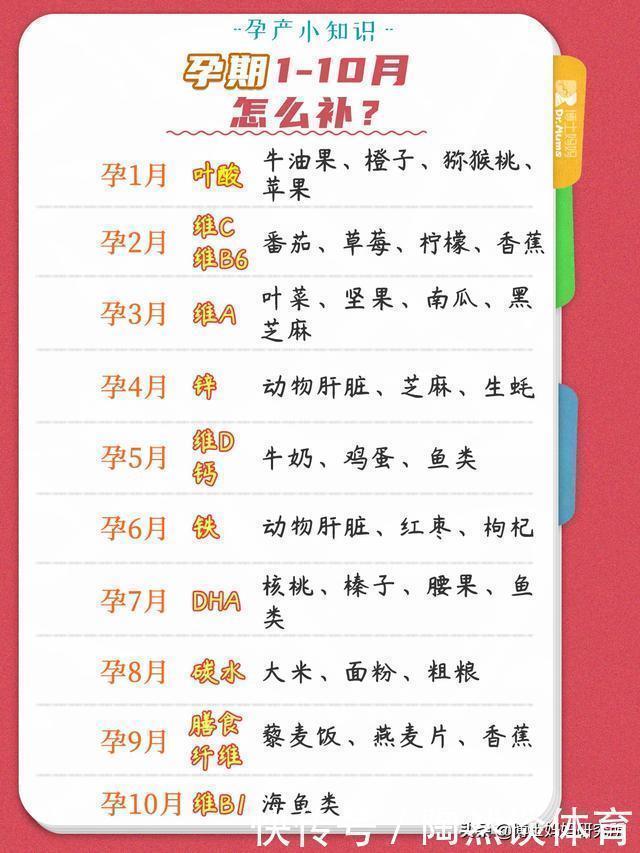 孕产小知识
孕期1-10月
怎么补?
博士妈妈
Dr.Mums
孕1月 叶酸 牛油果、橙子、猕猴桃、
苹果
孕2月 维C 维B6 番茄、草莓、柠檬、香蕉
孕3月 维A 叶菜、坚果、南瓜、黑
芝麻
孕4月 锌 动物肝脏、芝麻、生蚝
孕5月 维D 钙 牛奶、鸡蛋、鱼类
孕6月 铁 动物肝脏、红枣、枸杞
孕7月 DHA 核桃、榛子、腰果、鱼
类
孕8月 碳水 大米、面粉、粗粮
孕9月 膳食 纤维 藜麦饭、燕麦片、香蕉
孕10月 维B1 海鱼类
快传号 / 陶然谈体育